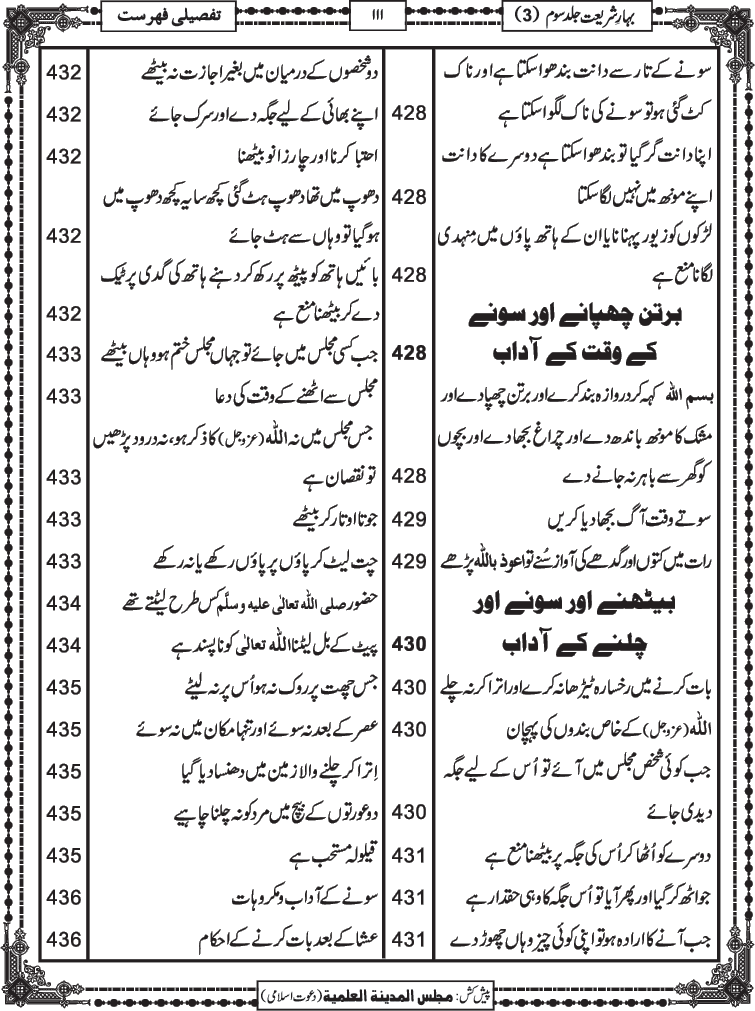 بہارِشریعت جلد سوم (3)
۱۱۱
تفصیلی فہرست
سونے کے تار سے دانت بندھوا سکتا ہے اور ناک
کٹ گئی ہو تو سونے کی ناک لگوا سکتا ہے 428
اپنا دانت گر گیا تو بندھوا سکتا ہے دوسرے کا دانت
اپنے مونھ میں نہیں لگا سکتا 428
لڑکوں کو زیور پہنانا یا ان کے ہاتھ پاؤں میں مِنہدی
لگانا منع ہے 428
برتن چھپانے اور سونے
کے وقت کے آداب 428
بسم اللہ کہہ کر دروازہ بند کرے اور برتن چھپا دے اور
مشک کا مونھ باندھ دے اور چراغ بجھا دے اور بچوں
کو گھر سے باہر نہ جانے دے 428
سوتے وقت آگ بجھا دیا کریں 429
رات میں کتوں اور گدھے کی آواز سُنے تو اعوذ باللہ پڑھے 429
بیٹھنے اور سونے اور
چلنے کے آداب 430
بات کرنے میں رخسارہ ٹیڑھا نہ کرے اور اترا کر نہ چلے 430
اللہ (عزوجل) کے خاص بندوں کی پہچان 430
جب کوئی شخص مجلس میں آئے تو اُس کے لیے جگہ
دیدی جائے 430
دوسرے کو اُٹھا کر اُس کی جگہ پر بیٹھنا منع ہے 431
جو اٹھ کر گیا اور پھر آیا تو اُس جگہ کا وہی حقدار ہے 431
جب آنے کا ارادہ ہو تو اپنی کوئی چیز وہاں چھوڑ دے 431
دو شخصوں کے درمیان میں بغیر اجازت نہ بیٹھے 432
اپنے بھائی کے لیے جگہ دے اور سرک جائے 432
احتبا کرنا اور چار زانو بیٹھنا 432
دھوپ میں تھا دھوپ ہٹ گئی کچھ سایہ کچھ دھوپ میں
ہو گیا تو وہاں سے ہٹ جائے 432
بائیں ہاتھ کو پیٹھ پر رکھ کر دہنے ہاتھ کی گدی پر ٹیک
دے کر بیٹھنا منع ہے 432
جب کسی مجلس میں جائے تو جہاں مجلس ختم ہو وہاں بیٹھے 433
مجلس سے اٹھنے کے وقت کی دعا 433
جس مجلس میں نہ اللہ (عزوجل) کا ذکر ہو، نہ درود پڑھیں
تو نقصان ہے 433
جوتا اوتار کر بیٹھے 433
چت لیٹ کر پاؤں پر پاؤں رکھے یا نہ رکھے 433
حضور صلی اللہ تعالٰی علیہ وسلّم کس طرح لیٹتے تھے 434
پیٹ کے بل لیٹنا اللہ تعالٰی کو ناپسند ہے 434
جس چھت پر روک نہ ہو اُس پر نہ لیٹے 435
عصر کے بعد نہ سوئے اور تنہا مکان میں نہ سوئے 435
اِترا کر چلنے والا زمین میں دھنسا دیا گیا 435
دو عورتوں کے بیچ میں مرد کو نہ چلنا چاہیے 435
قیلولہ مستحب ہے 435
سونے کے آداب و مکروہات 436
عشا کے بعد بات کرنے کے احکام 436
پیش کش: مجلس المدينة العلمية (دعوت اسلامی)